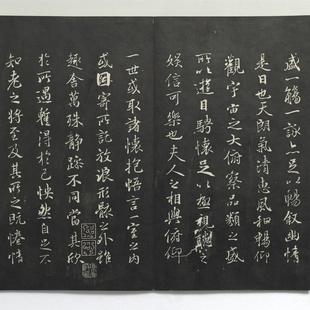 盛一觴一詠亦足以暢叙幽情
是日也天朗氣清惠風和暢仰
觀宇宙之大俯察品類之盛
所以遊目騁懷足以極視聽之
娛信可樂也夫人之相與俯仰
一世或取諸懷抱悟言一室之内
或因寄所託放浪形骸之外雖
趣舍萬殊静躁不同當其欣
於所遇暫得於己怏然自足不
知老之將至及其所之既惓情